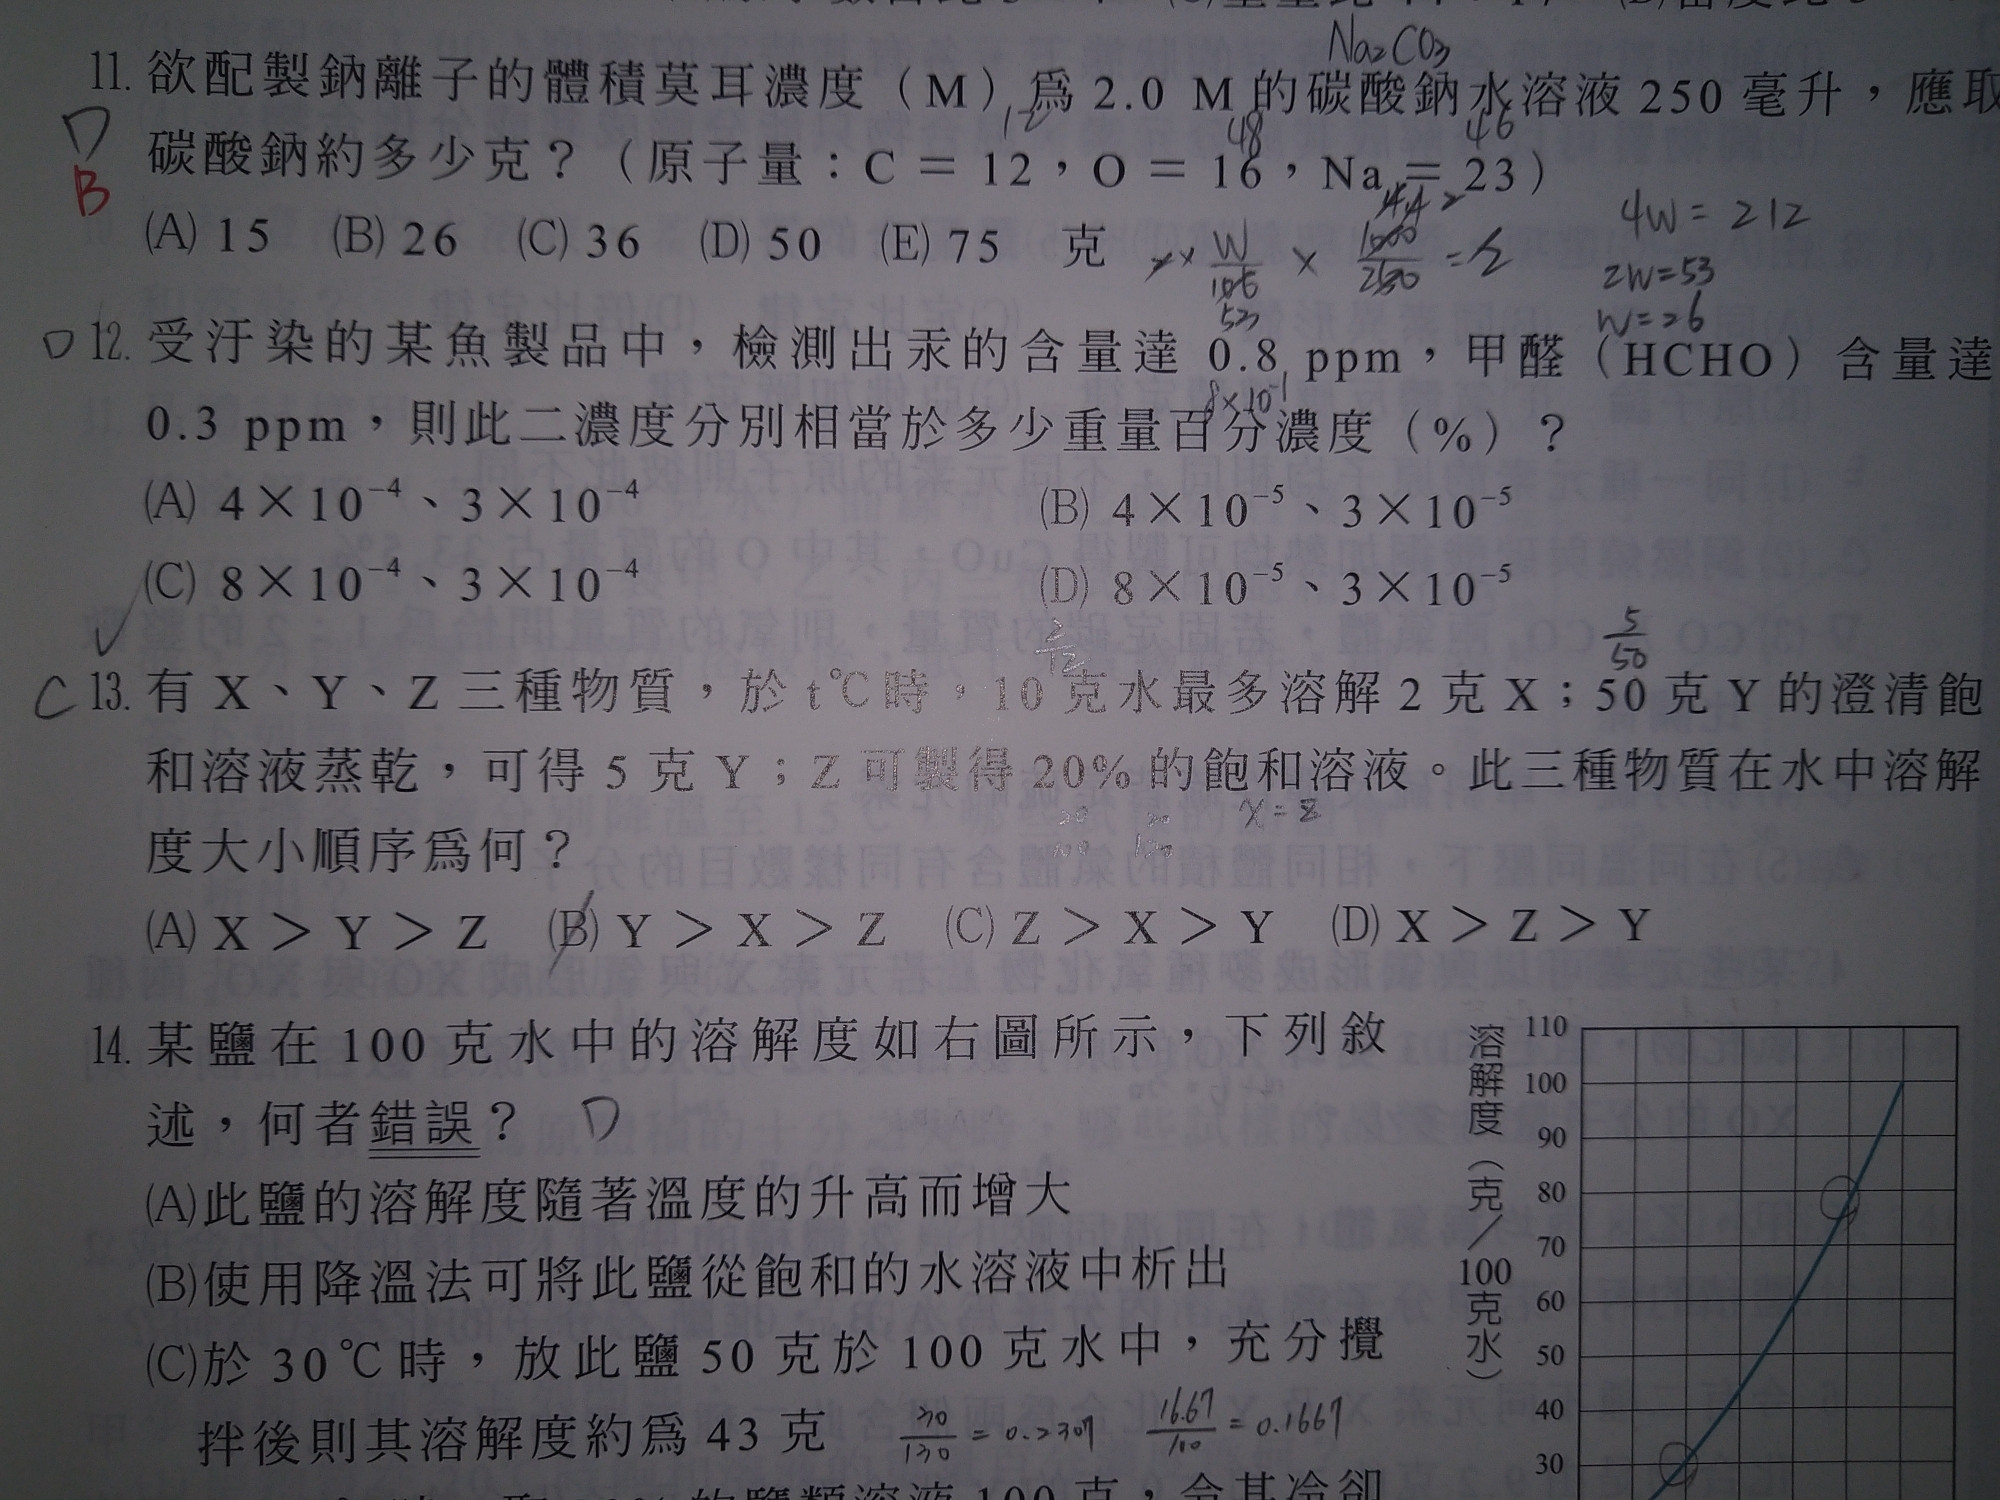 Na₂CO₃
11. 欲配製鈉離子的體積莫耳濃度（M）為 2.0 M 的碳酸鈉水溶液 250 毫升，應取
D
12 48 46
碳酸鈉約多少克？（原子量：C = 12，O = 16，Na = 23）
B
(A) 15 (B) 26 (C) 36 (D) 50 (E) 75 克
4W = 212
2W=53
W=26
D 12. 受汙染的某魚製品中，檢測出汞的含量達 0.8 ppm，甲醛（HCHO）含量達
8×10⁻¹
0.3 ppm，則此二濃度分別相當於多少重量百分濃度（%）？
(A) 4×10⁻⁴、3×10⁻⁴ (B) 4×10⁻⁵、3×10⁻⁵
(C) 8×10⁻⁴、3×10⁻⁴ (D) 8×10⁻⁵、3×10⁻⁵
2/12 5/50
C 13. 有 X、Y、Z 三種物質，於 t℃時，10 克水最多溶解 2 克 X；50 克 Y 的澄清飽
和溶液蒸乾，可得 5 克 Y；Z 可製得 20% 的飽和溶液。此三種物質在水中溶解
度大小順序為何？
(A) X > Y > Z (B) Y > X > Z (C) Z > X > Y (D) X > Z > Y
14. 某鹽在 100 克水中的溶解度如右圖所示，下列敘
述，何者錯誤？ D
(A)此鹽的溶解度隨著溫度的升高而增大
(B)使用降溫法可將此鹽從飽和的水溶液中析出
(C)於 30℃時，放此鹽 50 克於 100 克水中，充分攪
拌後則其溶解度約為 43 克
30/130 = 0.2307 16.67/100 = 0.1667
的鹽類溶液 100 克，令其冷卻
溶解度（克／100克水）
110
100
90
80
70
60
50
40
30